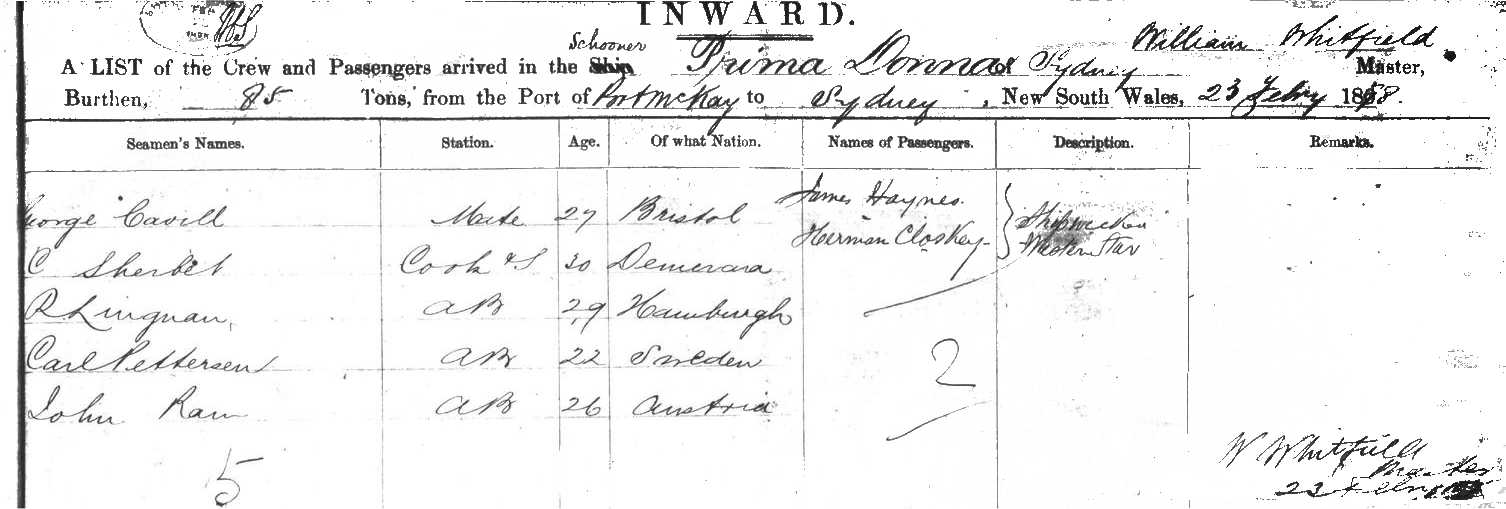 INWARD.
Schooner William Whitfield
A LIST of the Crew and Passengers arrived in the Ship Prima Donna of Sydney Master,
Burthen, 85 Tons, from the Port of Port McKay to Sydney, New South Wales, 23 Febry 18 8.
Seamen's Names. Station. Age. Of what Nation. Names of Passengers. Description. Remarks.
James Haynes.
George Cavill Mate 27 Bristol Shipwrecked
Herman Closkey Western Star
C Sherbet Cook & S 30 Demerara
R Lingnau, AB 29 Hamburgh
Carl Pettersen AB 22 Sweden
2
John Ram AB 26 Austria
W Whitfield
Master
5
23